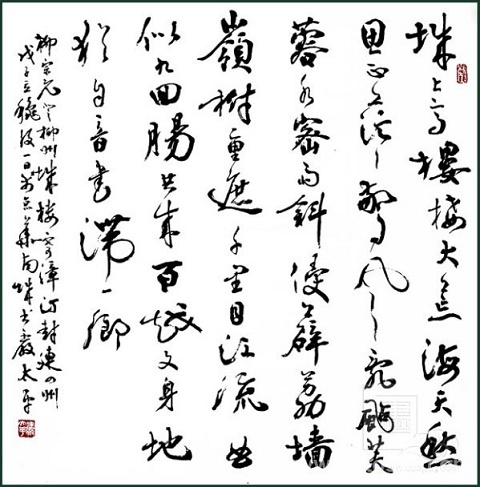 城上高樓接大荒海天愁
思正茫茫驚風亂颭芙
蓉水密雨斜侵薜荔墙
嶺樹重遮千里目江流曲
似九回腸共來百越文身地
猶自音書滯一鄉
柳宗元登柳州城樓寄漳汀封連四州
戊子立穐後一日於京華南城書嚴太平